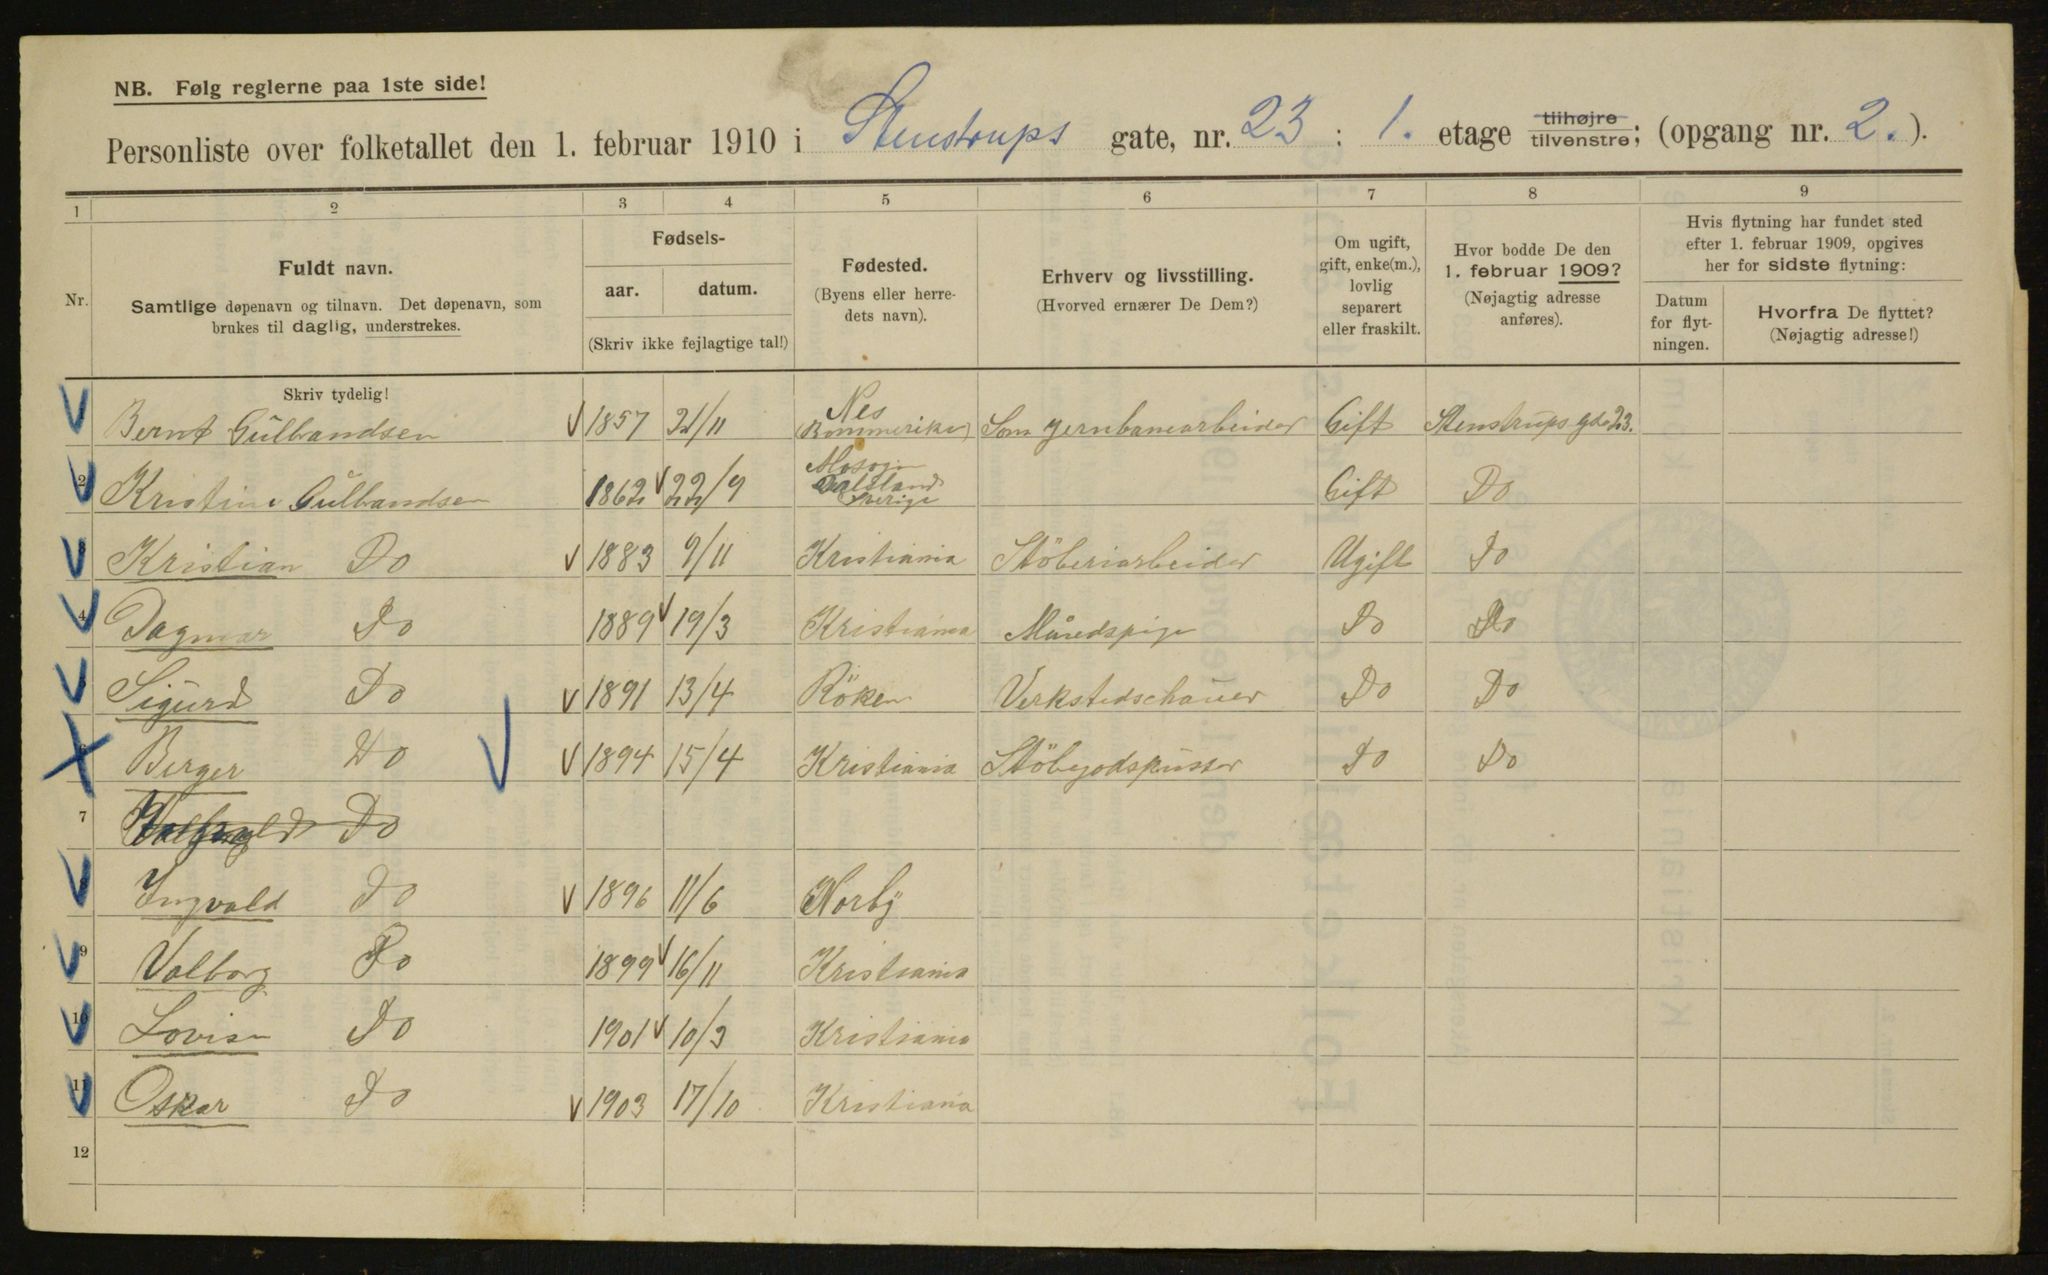 NB. Følg reglerne paa 1ste side!
Personliste over folketallet den 1. februar 1910 i Stenstrups gate, nr. 23 : 1. etage tilhøjre tilvenstre; (opgang nr. 2. ).
1 2 3 4 5 6 7 8 9
Nr.
Fuldt navn.
Samtlige døpenavn og tilnavn. Det døpenavn, som
brukes til daglig, understrekes.
Fødsels-
aar. datum.
(Skriv ikke fejlagtige tal!)
Fødested.
(Byens eller herre-
dets navn).
Erhverv og livsstilling.
(Hvorved ernærer De Dem?)
Om ugift,
gift, enke(m.),
lovlig
separert
eller fraskilt.
Hvor bodde De den
1. februar 1909?
(Nøjagtig adresse
anføres).
Hvis flytning har fundet sted
efter 1. februar 1909, opgives
her for sidste flytning:
Datum
for flyt-
ningen.
Hvorfra De flyttet?
(Nøjagtig adresse!)
Skriv tydelig!
Bernt Gulbandsen 1857 21/11 Nes (Rommerike) Som jernbanearbeider Gift Stenstrups gde 23.
2 Kristine Gulbandsen 1862 22/9 Dalsland Sverige Gift Do
3 Kristian Do 1883 9/11 Kristiania Stöberiarbeider Ugift Do
4 Dagmar Do 1889 19/3 Kristiania Do Do
5 Sigurd Do 1891 13/4 Röken Do Do
6 Berger Do 1894 15/4 Kristiania Stöbegodspusser Do Do
7 Do
8 Ingvald Do 1896 11/6 Norby
9 Valborg Do 1899 16/11 Kristiania
10 Lovise Do 1901 10/3 Kristiania
11 Oskar Do 1903 17/10 Kristiania
12